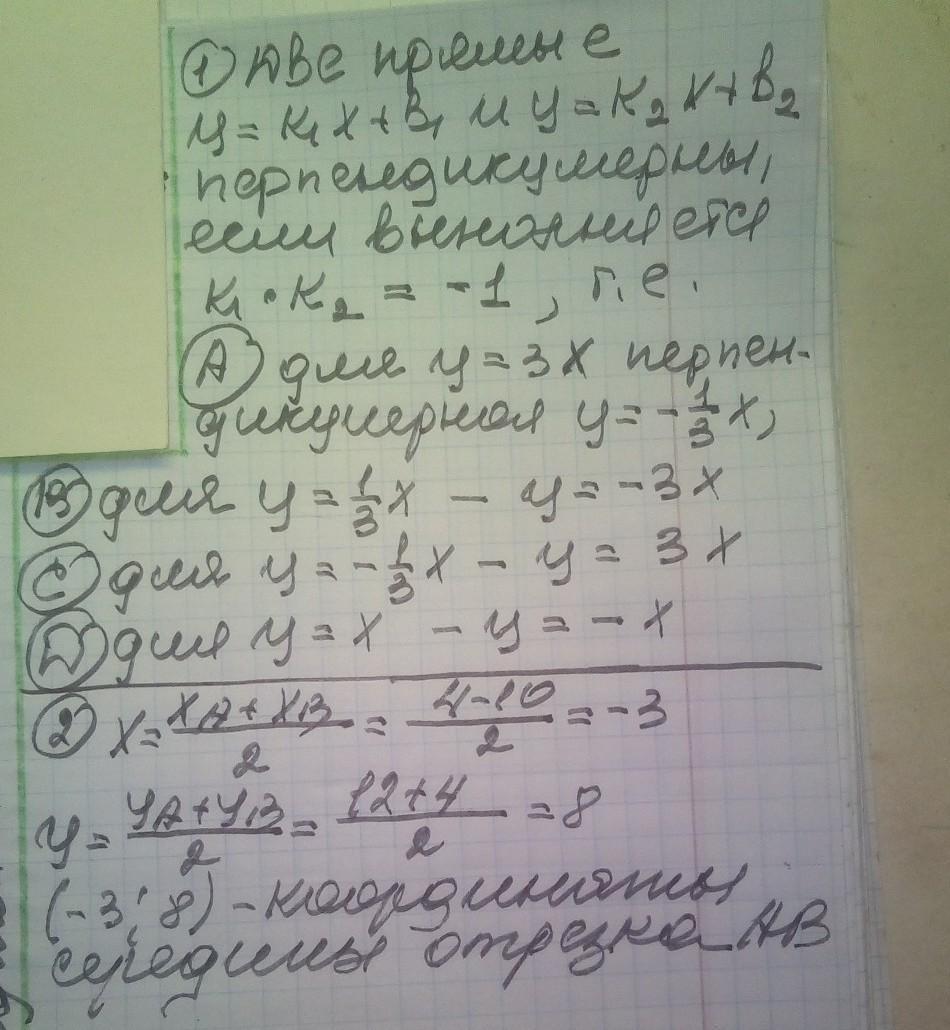 ① Две прямые
y = k₁x + b₁ и y = k₂x + b₂
перпендикулярны,
если выполняется
k₁ · k₂ = -1, т.е.
Ⓐ для y = 3x перпен-
дикулярная y = -1/3 x,
Ⓑ для y = 1/3 x – y = -3x
Ⓒ для y = -1/3 x – y = 3x
Ⓓ для y = x – y = -x
② x = (xA + xB)/2 = (4-10)/2 = -3
y = (yA + yB)/2 = (12+4)/2 = 8
(-3; 8) – координаты
середины отрезка AB